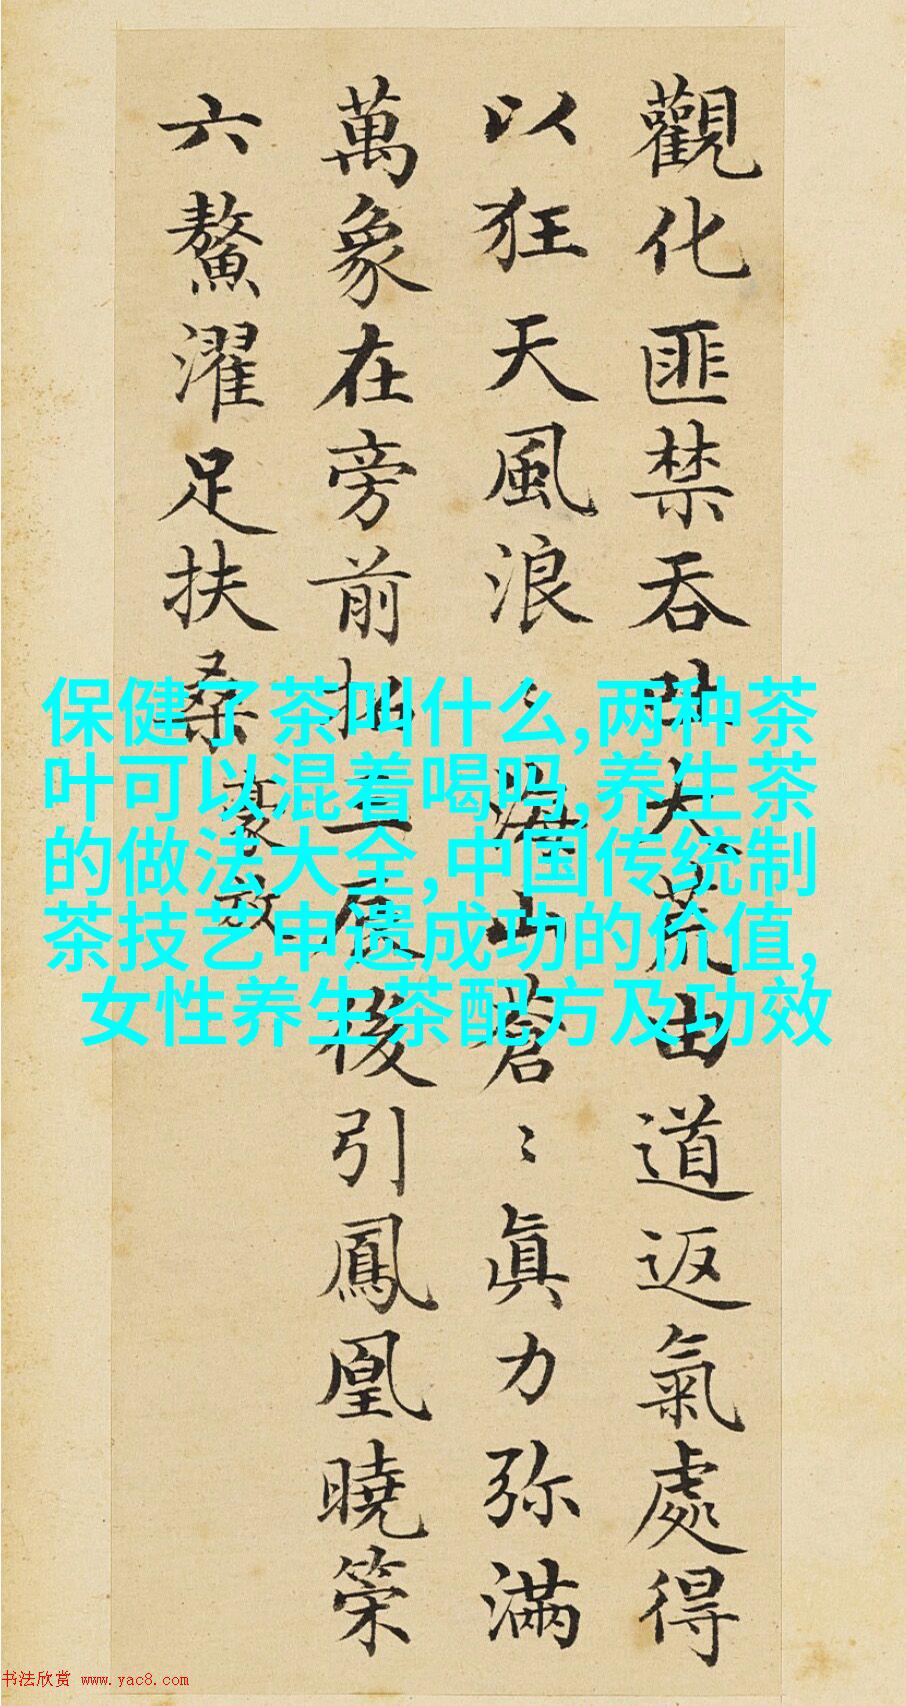 觀化匪禁吞大荒由道返氣處得
以狂天風浪〻海山蒼〻眞力弥滿
萬象在旁前招三辰後引鳳凰曉策
六鰲濯足扶桑
裒效
保健了茶叫什么,两种茶
叶可以混着喝吗,养生茶
的做法大全,中国传统制
茶技艺申遗成功的价值,
女性养生茶配方及功效
书法欣赏 www.yac8.com